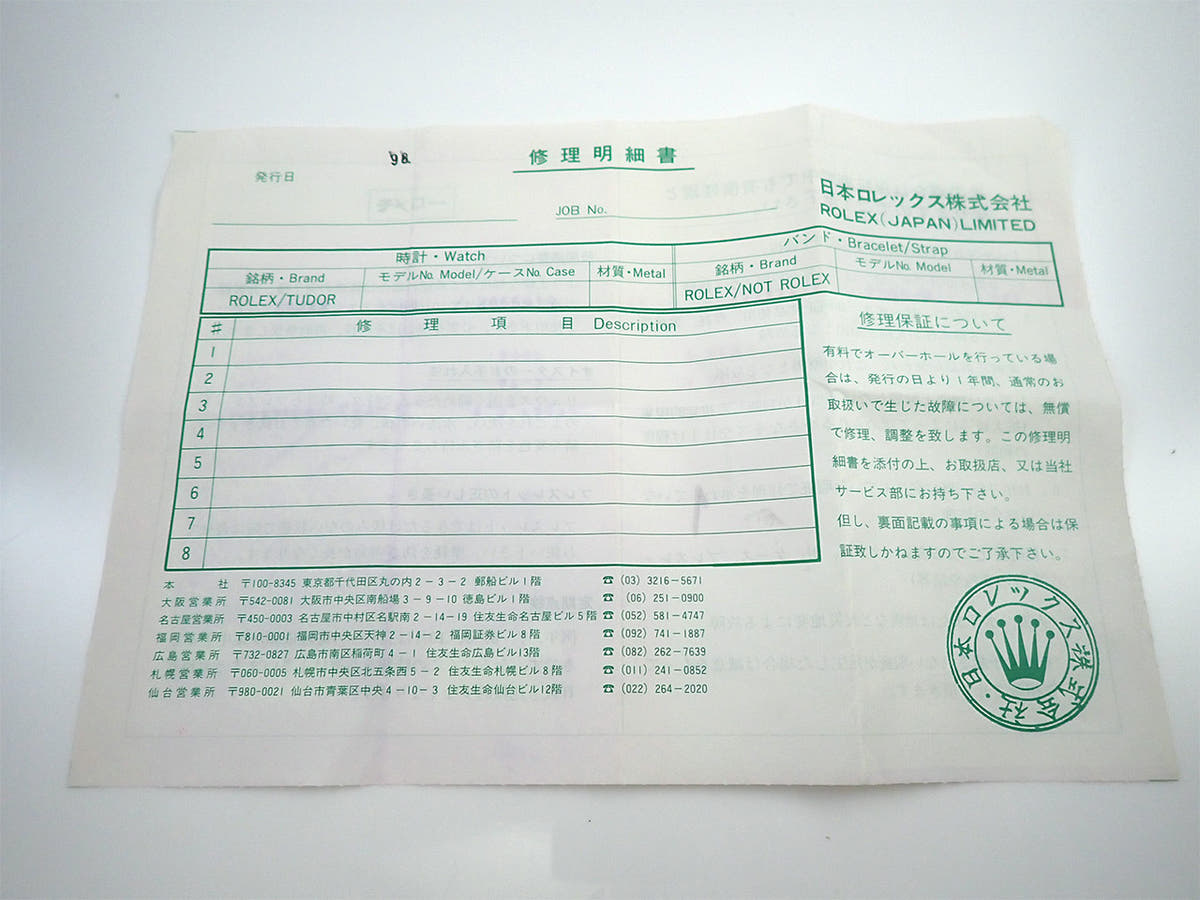 '98
修理明細書
発行日
JOB No.
日本ロレックス株式会社
ROLEX(JAPAN)LIMITED
時計・Watch
バンド・Bracelet/Strap
銘柄・Brand
モデルNo. Model/ケースNo. Case
材質・Metal
銘柄・Brand
モデルNo. Model
材質・Metal
ROLEX/TUDOR
ROLEX/NOT ROLEX
# 修理項目 Description
1
2
3
4
5
6
7
8
修理保証について
有料でオーバーホールを行っている場
合は、発行の日より1年間、通常のお
取扱いで生じた故障については、無償
で修理、調整を致します。この修理明
細書を添付の上、お取扱店、又は当社
サービス部にお持ち下さい。
但し、裏面記載の事項による場合は保
証致しかねますのでご了承下さい。
本社 〒100-8345 東京都千代田区丸の内2-3-2 郵船ビル1階 ☎(03) 3216-5671
大阪営業所 〒542-0081 大阪市中央区南船場3-9-10 徳島ビル1階 ☎(06) 251-0900
名古屋営業所 〒450-0003 名古屋市中村区名駅南2-14-19 住友生命名古屋ビル5階 ☎(052) 581-4747
福岡営業所 〒810-0001 福岡市中央区天神2-14-2 福岡証券ビル8階 ☎(092) 741-1887
広島営業所 〒732-0827 広島市南区稲荷町4-1 住友生命広島ビル13階 ☎(082) 262-7639
札幌営業所 〒060-0005 札幌市中央区北五条西5-2 住友生命札幌ビル8階 ☎(011) 241-0852
仙台営業所 〒980-0021 仙台市青葉区中央4-10-3 住友生命仙台ビル12階 ☎(022) 264-2020
・日本ロレックス株式会社